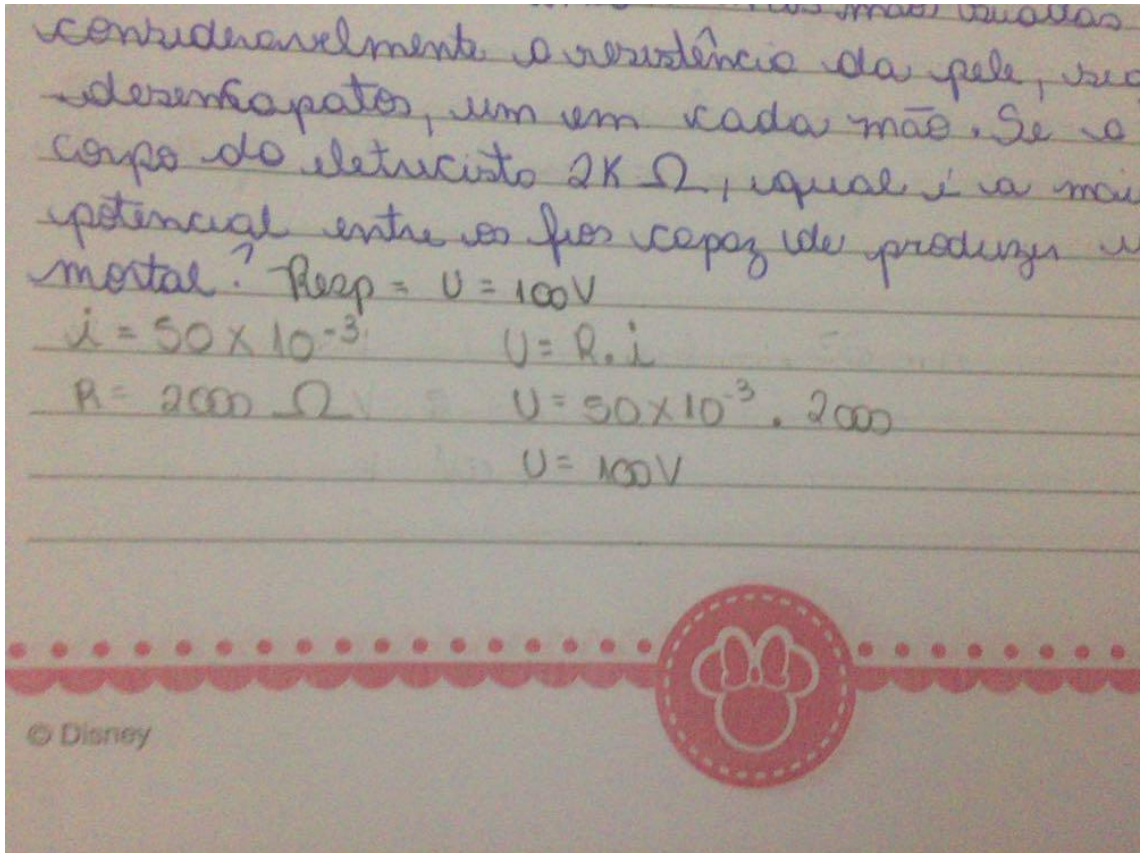 mãos suadas
consideravelmente a resistência da pele, seg
desencapatos, um em cada mão. Se a
corpo do eletricista 2K Ω, qual é a mai
potencial entre os fios capaz de produzir u
mortal? Resp = U = 100V
i = 50 x 10⁻³ U = R. i
R = 2000 Ω U = 50x10⁻³ . 2000
U = 100V
© Disney